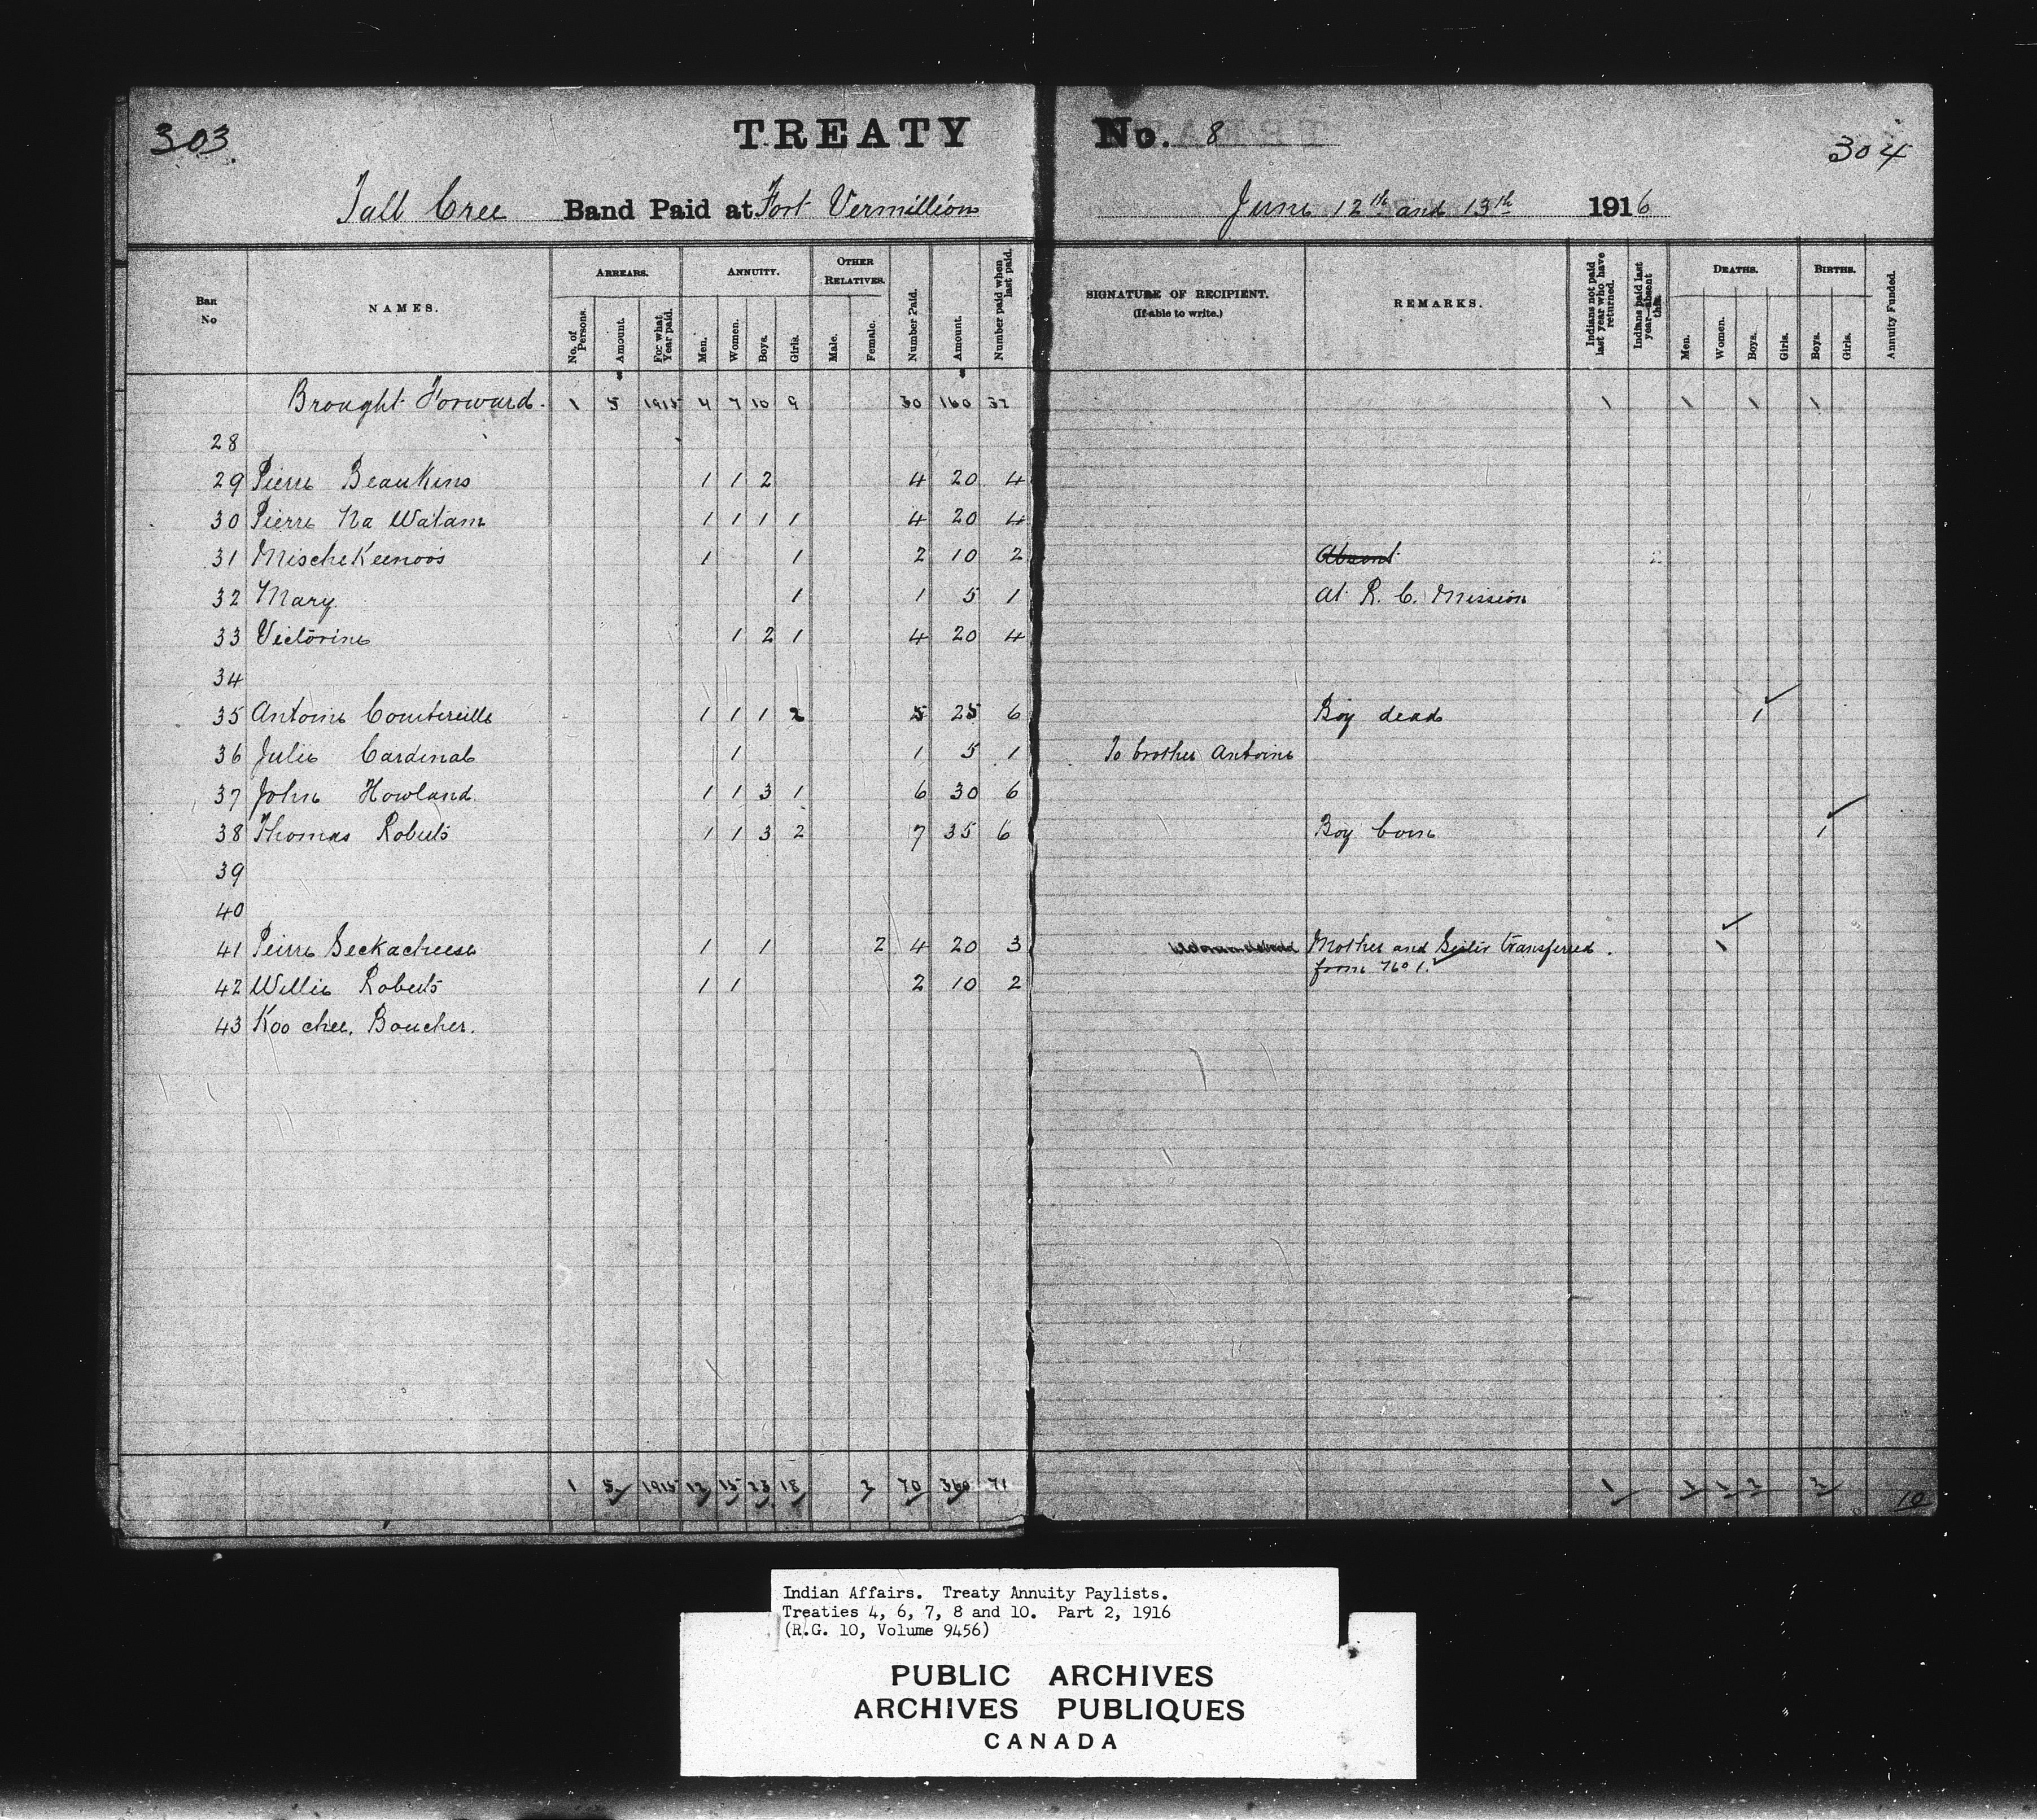 303
TREATY No. 8
304
Tall Cree Band Paid at Fort Vermillion June 12th and 13th 1916
Ban No
NAMES.
ARREARS.
No. of Persons.
Amount.
For what Year paid.
ANNUITY.
Men.
Women.
Boys.
Girls.
OTHER RELATIVES.
Male.
Female.
Number Paid.
Amount.
Number paid when last paid.
SIGNATURE OF RECIPIENT.
(If able to write.)
REMARKS.
Indians not paid last year who have returned.
Indians paid last year—absent this.
DEATHS.
Men.
Women.
Boys.
Girls.
BIRTHS.
Boys.
Girls.
Annuity Funded.
Brought Forward. 1 5 1915 4 7 10 9 30 160 32 1 1 1 1
28
29 Pierre Beaukins 1 1 2 4 20 4
30 Pierre Na Watam 1 1 1 1 4 20 4
31 Mische Keenoos 1 1 2 10 2 Absent 2
32 Mary 1 1 5 1 At R. C. Mission
33 Victorine 1 2 1 4 20 4
34
35 Antoine Courtereille 1 1 1 2 5 25 6 Boy dead 1
36 Julie Cardinal 1 1 5 1 To brother Antoine
37 John Howland 1 1 3 1 6 30 6
38 Thomas Roberts 1 1 3 2 7 35 6 Boy born 1
39
40
41 Peirre Seckacheese 1 1 2 4 20 3 Mother and Sister transferred. 1
from No 1.
42 Willie Roberts 1 1 2 10 2
43 Koo chee. Boucher.
1 5 1915 12 15 23 18 2 70 360 71 1 1 1 2 2 10
Indian Affairs. Treaty Annuity Paylists.
Treaties 4, 6, 7, 8 and 10. Part 2, 1916
(R.G. 10, Volume 9456)
PUBLIC ARCHIVES
ARCHIVES PUBLIQUES
CANADA